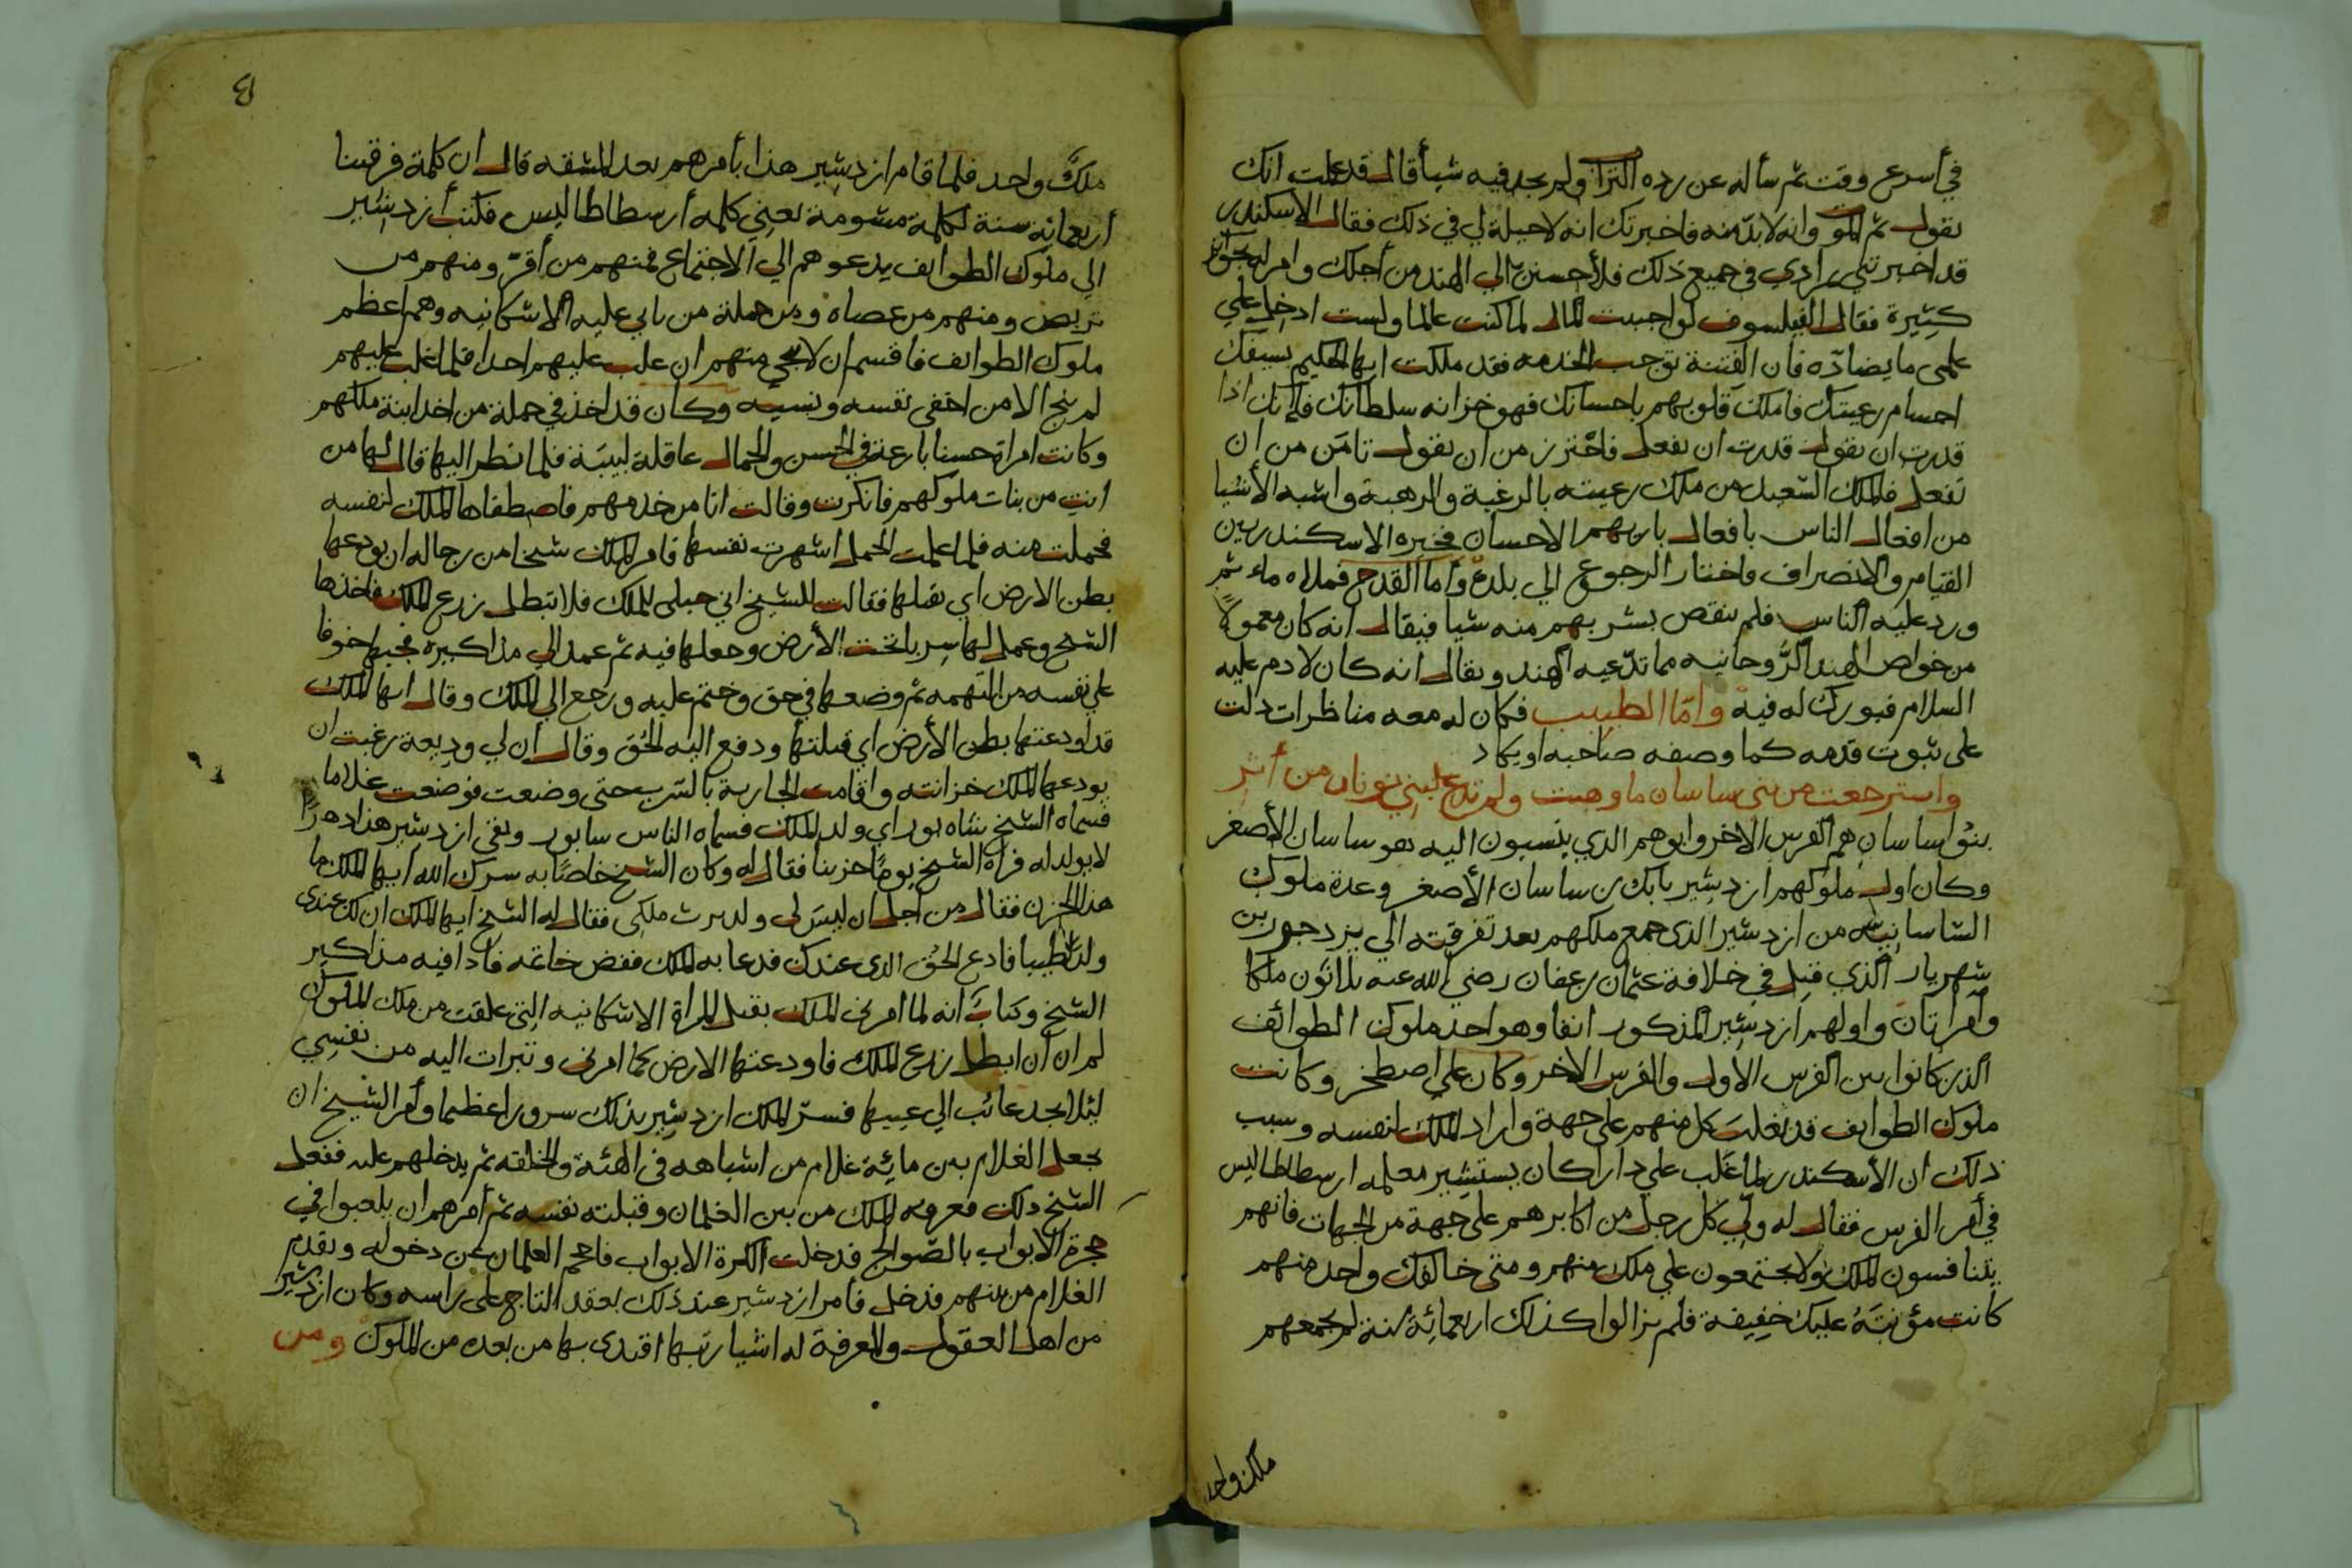 في أسرع وقت ثم سأله عن رده التراب ولم يجد فيه شيأ قال قد علمت انك
تقول ثم الموت وانه لا بد منه فاخبرتك انه لا حيلة لي في ذلك فقال الاسكندر
قد اخبرتني مرادي في جميع ذلك فلأحسنن الي الهند من أجلك وامر له بجوائز
كثيرة فقال الفيلسوف لو احببت المال لما كنت عالما ولست ادخل علي
علمي ما يضادّه فان القنية توجب الخدمه فقد ملكت ايها الحكيم بسيفك
اجسام رعيتك فاملك قلوبهم باحسانك فهو خزانه سلطانك فانك اذا
قدرت ان تقول قدرت ان تفعل فاحترز من ان تقول تامن من ان
تفعل فالملك السعيد من ملك رعيته بالرغبة والرهبة واشبه الأشيا
من افعال الناس بافعال باريهم الاحسان فخيره الاسكندر بين
القيام والانصراف فاختار الرجوع الي بلده وأما القدح فملاه ماء ثم
ورد عليه الناس فلم ينقص بشربهم منه شيا فيقال انه كان معمولا
من خواص الهند الرُّوحانيه مما تدّعيه الهند ويقال انه كان لادم عليه
السلام فبورك له فيه وامّا الطبيب فكان له معه مناظرات دلت
على ثبوت قدمه كما وصفه صاحبه او يكاد
واسترجعت من بني ساسان ما وهبت ولم تدع لبني يونان من أثر
بنُوا ساسان هم الفرس الاخر وابوهم الذي ينسبون اليه هو ساسان الأصغر
وكان اول ملوكهم ازدشير بابك بن ساسان الأصغر وعدة ملوك
الساسانيه من ازدشير الذي جمع ملكهم بعد تفرقته الي يزدجرد بن
شهريار الذي قتل في خلافة عثمان بن عفان رضي الله عنه ثلاثون ملكا
وأمرأتان واولهم ازدشير المذكور انفا وهو احد ملوك الطوائف
الذين كانوا بين الفرس الأول والفرس الاخر وكان علي اصطخر وكانت
ملوك الطوايف قد تغلب كل منهم علي جهة واراد الملك لنفسه وسبب
ذلك ان الأسكندر لما غلب علي دارا كان يستشير معلمه ارسطاطاليس
في أمر الفرس فقال له ولّي كل رجل من اكابرهم علي جهة من الجهات فانهم
يتنافسون الملك ولا يجتمعون علي ملك منهم ومتى خالفك واحد منهم
كانت مؤنتهُ عليك خفيفة فلم يزالوا كذلك اربعمائة سنة لم يجمعهم
ملك واحد
ملكٌ واحد فلما قام ازدشير هذا بأمرهم بعد المشقه قال ان كلمة فرقتنا
أربعمائة سنة لكلمة مشومة يعني كلمه أرسطاطاليس فكتب أزدشير
الي ملوك الطوايف يدعوهم الي الاجتماع فمنهم من أقرّ ومنهم من
تربص ومنهم من عصاه ومن جملة من ابي عليه الاشكانيه وهم اعظم
ملوك الطوايف فاقسم ان لا ينجي منهم ان غلب عليهم احدا فلما غلب عليهم
لم ينج الا من اخفي نفسه ونسبه وكان قد اخذ في جملة من اخذ ابنة ملكهم
وكانت امراة حسنا بارعة في الحسن والجمال عاقلة لبيبة فلما نظر اليها قال لها من
انت من بنات ملوكهم فانكرت وقالت انا من خدمهم فاصطفاها الملك لنفسه
فحملت منه فلما علمت الحمل اشهرت نفسها فامر الملك شيخا من رجاله ان يودعها
بطن الارض اي يقتلها فقالت للشيخ اني حبلى للملك فلا تبطل زرع الملك فاخذها
الشيخ وعمل لها سربا تحت الأرض وجعلها فيه ثم عمد الي مذاكيره فجبها خوفا
علي نفسه من التهمه ثم وضعها في حق وختم عليه ورجع الي الملك وقال ايها الملك
قد اودعتها بطن الأرض اي قتلتها ودفع اليه الحُق وقال ان لي وديعة رغبت ان
يودعها الملك خزانته واقامت الجارية بالسرب حتى وضعت فوضعت غلاما
فسماه الشيخ شاه بور اي ولد الملك فسماه الناس سابور وبقى ازدشير هذا دهرًا
لا يولد له فراه الشيخ يومًا حزينا فقال له وكان الشيخ خاصًا به سرك الله ايها الملك ما
هذا الحزن فقال من أجل ان ليس لى ولد يرث ملكى فقال له الشيخ ايها الملك ان لك عندى
ولدا طيبا فادع الحُق الذى عندك فدعا به الملك ففض خاتمه فاذا فيه مذاكير
الشيخ وكتاب انه لما امرنى الملك بقتل المراة الاشكانيه التي علقت من ملك الملوك
لم ار ان ابطل زرع الملك فاودعتها الارض كما امرنى وتبرات اليه من نفسي
لئلا يجد عائب الي عيبها فسرّ الملك ازدشير بذلك سرورا عظيما وأمر الشيخ ان
يجعل الغلام بين مائة غلام من اشباهه في الهئة والخلقه ثم يدخلهم عليه ففعل
الشيخ ذلك فعرفه الملك من بين الغلمان وقبلته نفسه ثم أمرهم ان يلعبوا في
حجرة الأبواب بالصوالج فدخلت الكرة الابواب فاحجم الغلمان عن دخوله وتقدم
الغلام من بينهم فدخل فأمر ازدشير عند ذلك بعقد التاج على راسه وكان ازدشير
من اهل العقول والمعرفة له اشيا رتبها اقتدى بها من بعده من الملوك ومن